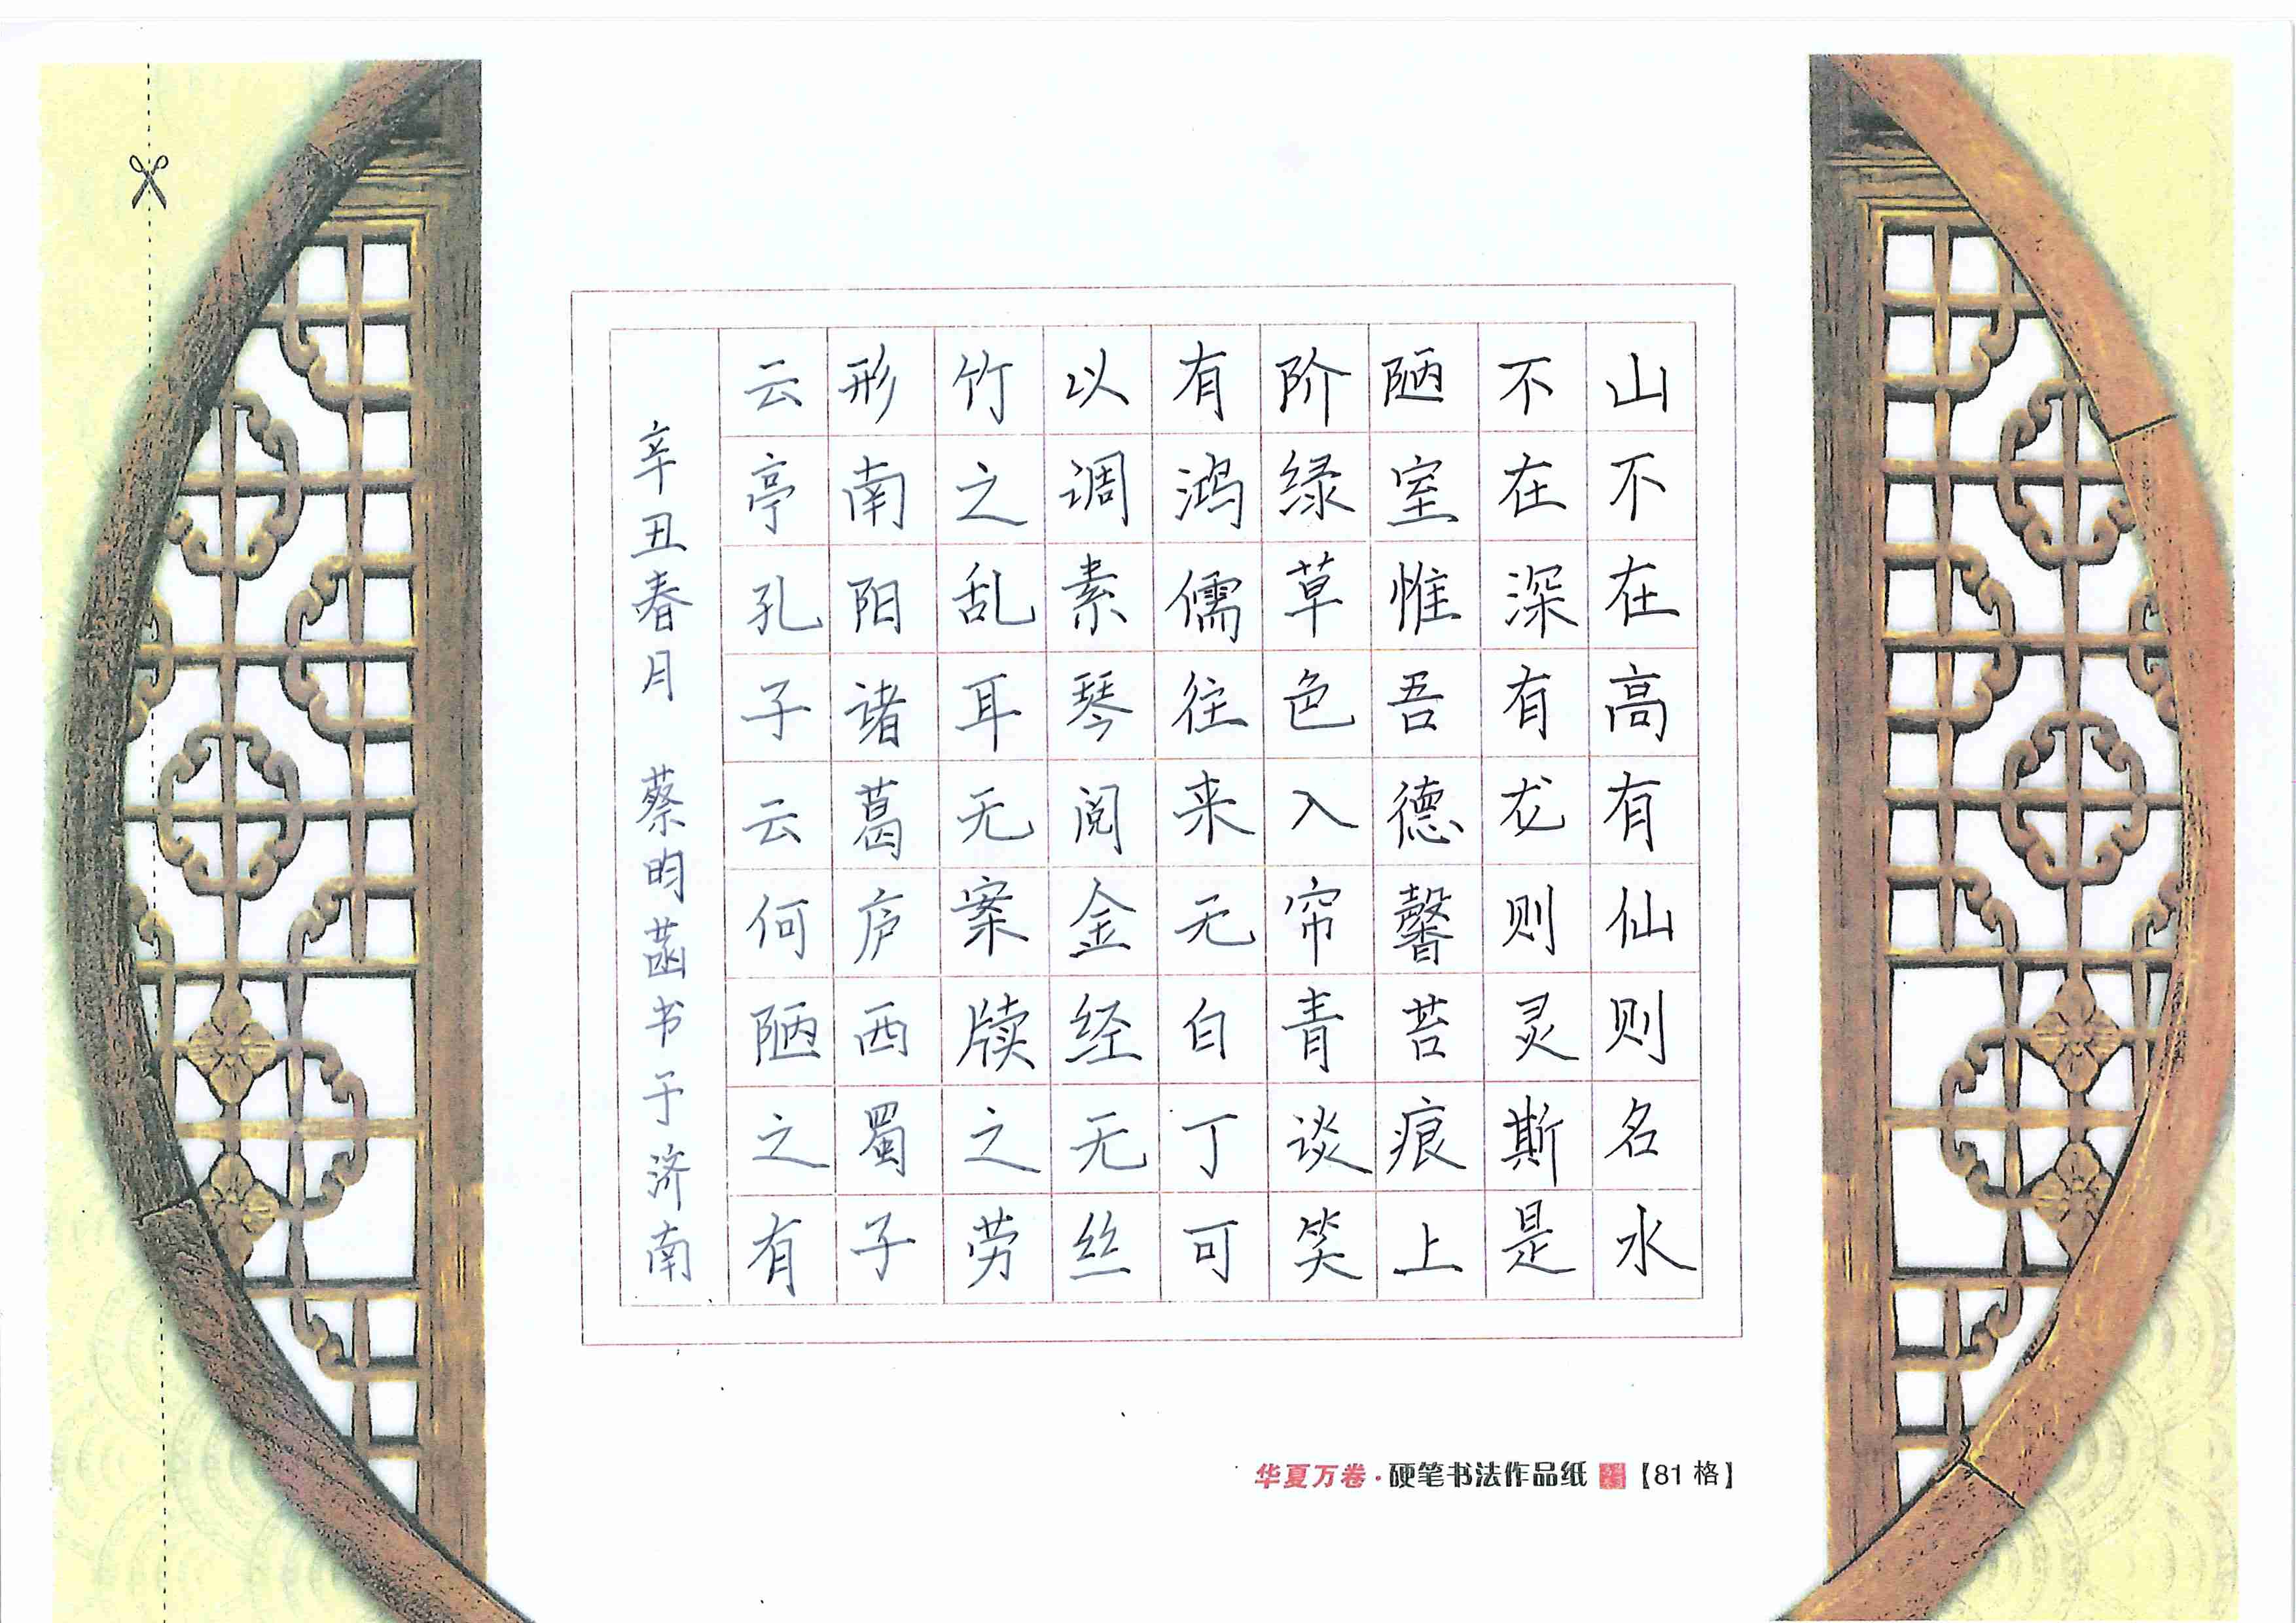 山不在高有仙则名水
不在深有龙则灵斯是
陋室惟吾德馨苔痕上
阶绿草色入帘青谈笑
有鸿儒往来无白丁可
以调素琴阅金经无丝
竹之乱耳无案牍之劳
形南阳诸葛庐西蜀子
云亭孔子云何陋之有
辛丑春月 蔡昀菡书于济南
华夏万卷·硬笔书法作品纸【81格】